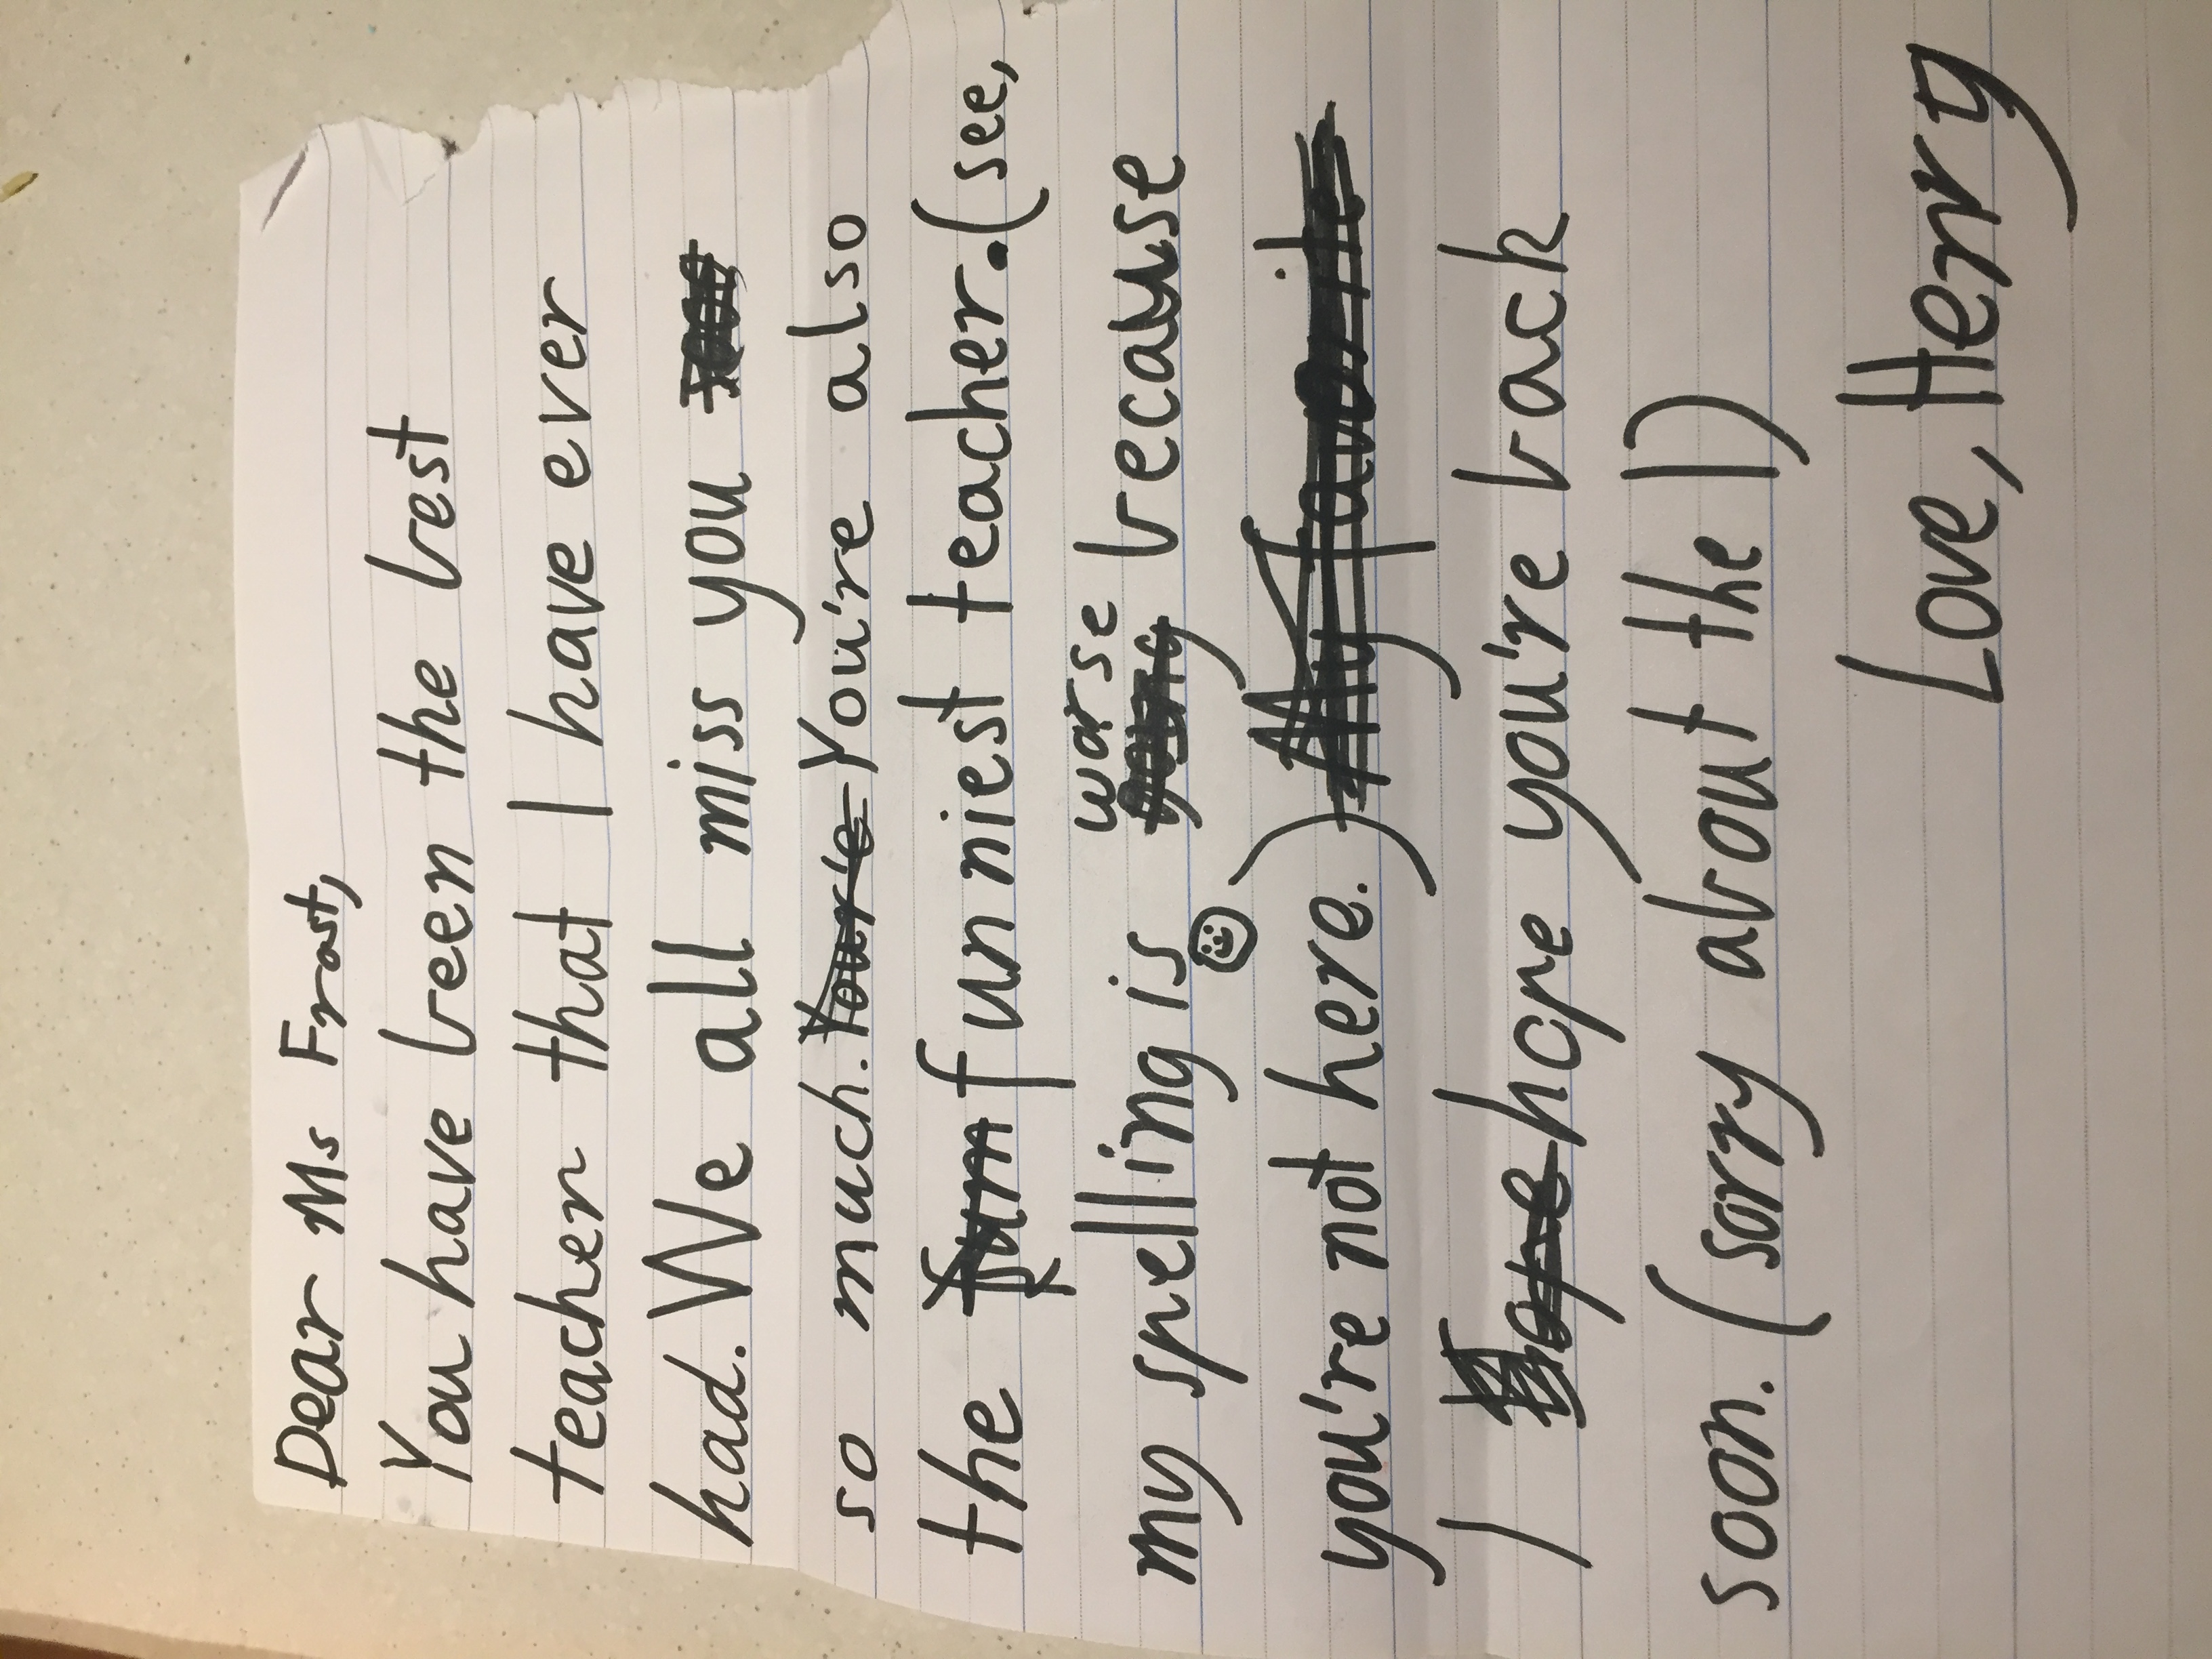 Dear Ms Frost,
You have been the best
teacher that I have ever
had. We all miss you
so much. You're You're also
the fun funniest teacher. (see,
worse
my spelling is because
you're not here.) My favorite
I Hope hope you're back
soon. (sorry about the I)
Love, Henry